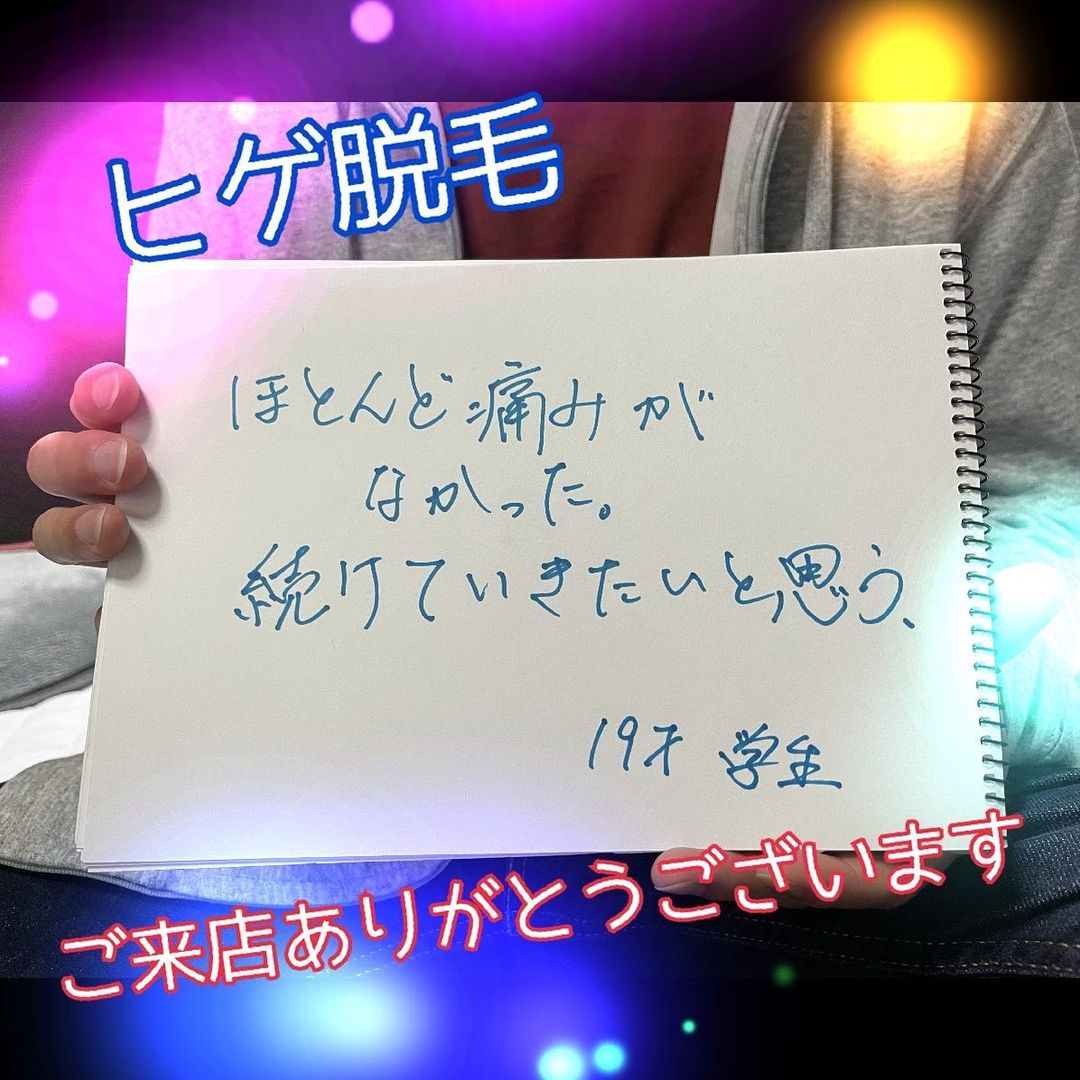 ヒゲ脱毛
ほとんど痛みが
なかった。
続けていきたいと思う、
19才 学生
ご来店ありがとうございます